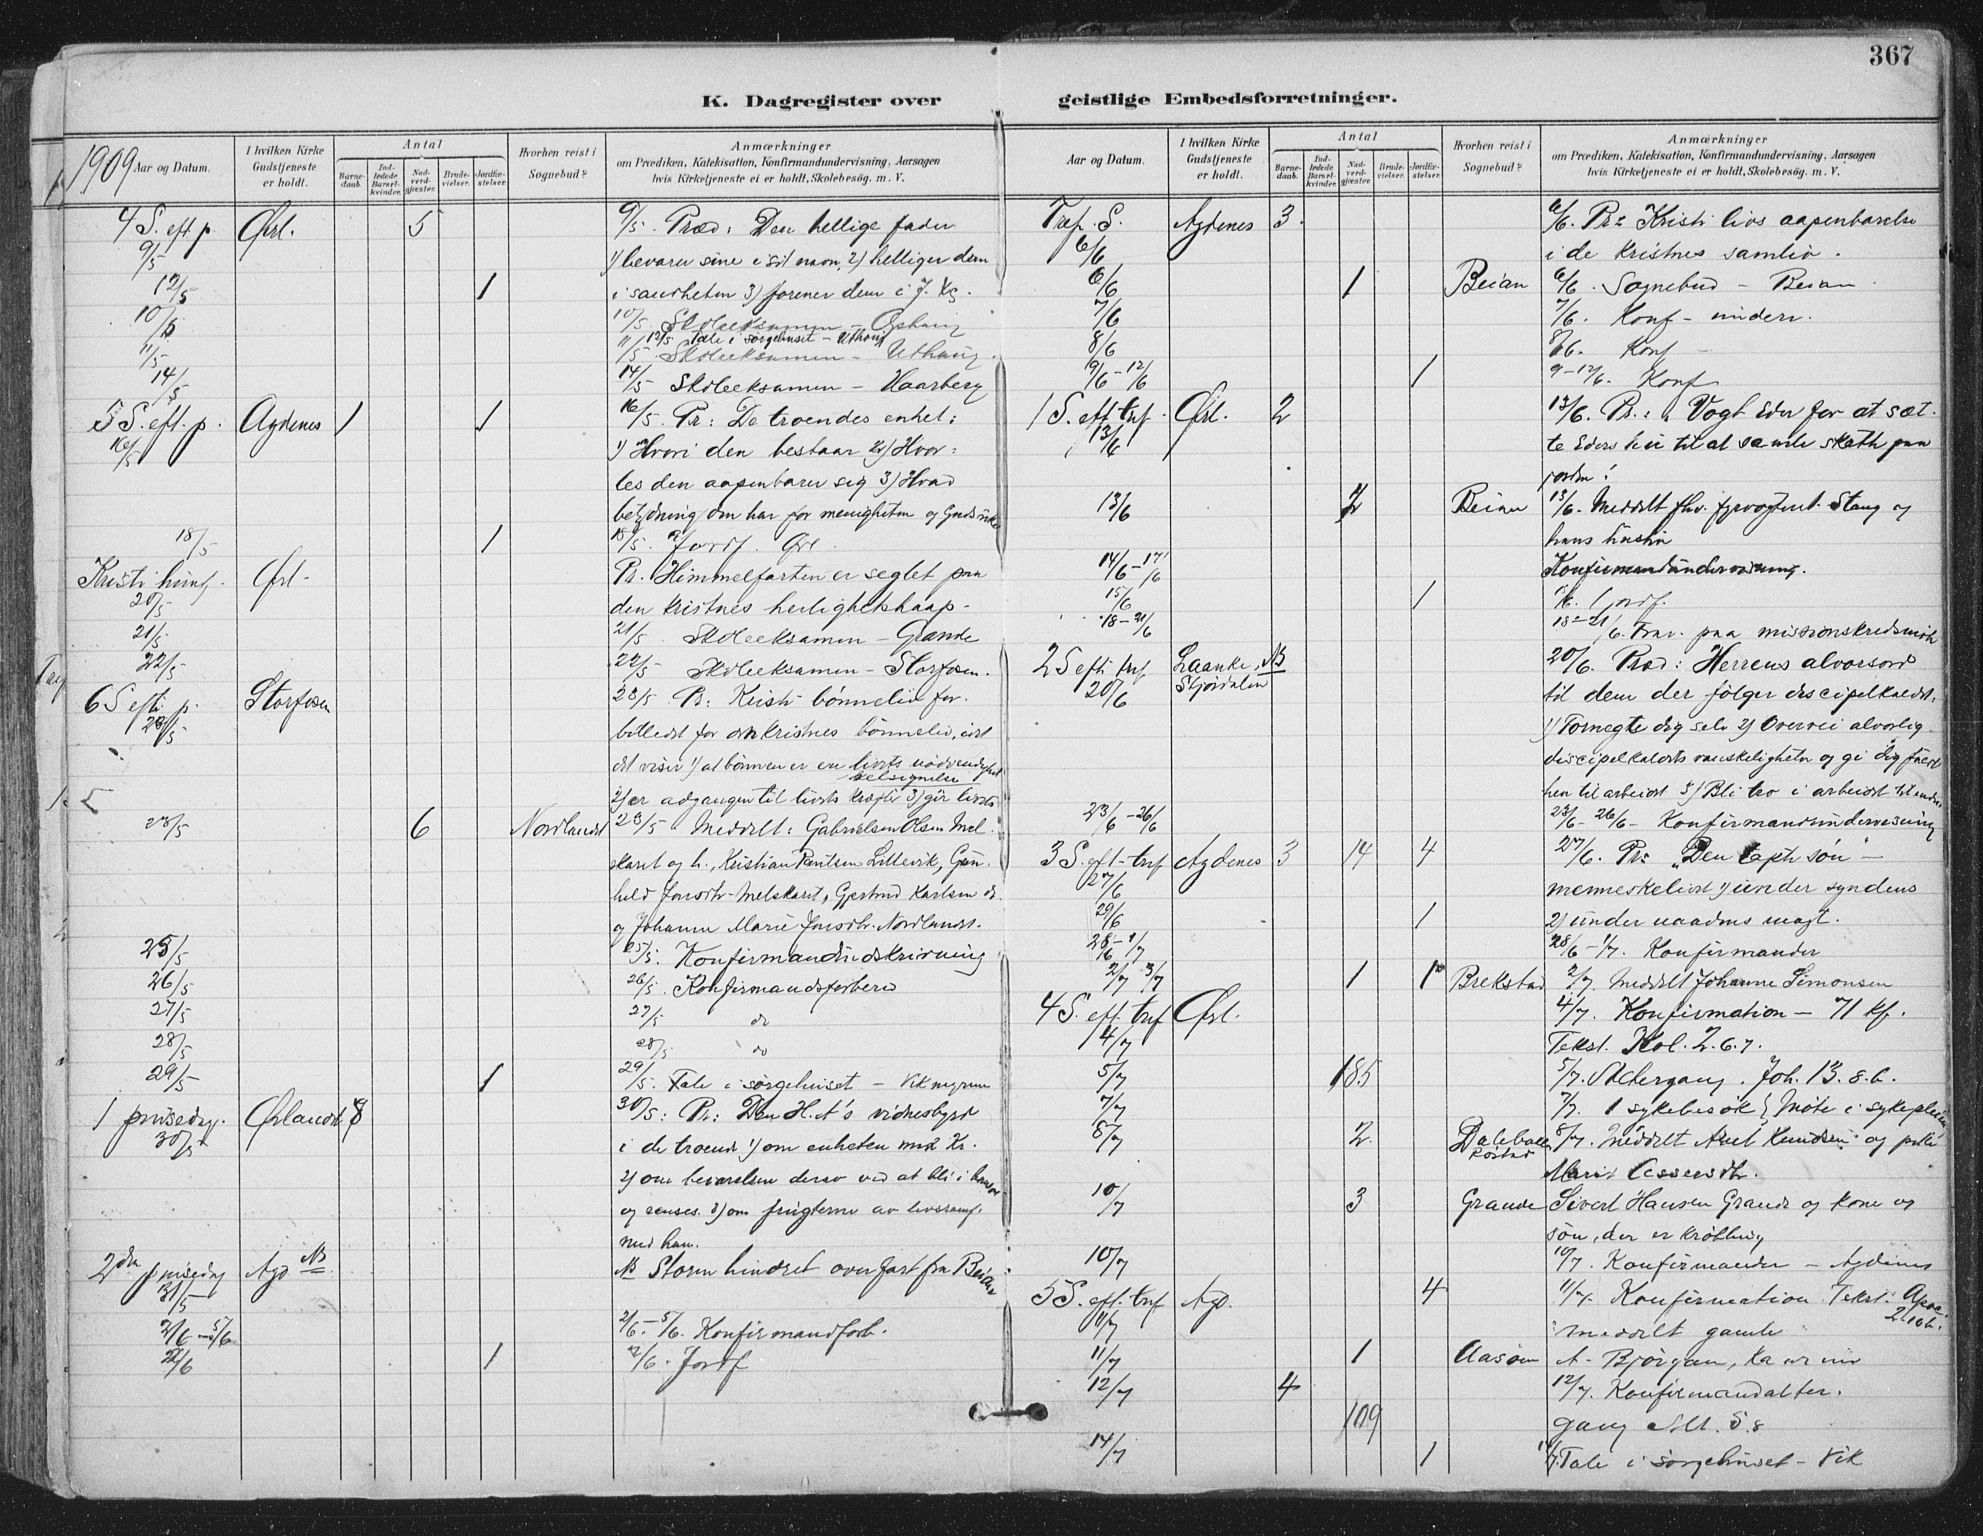 367
K. Dagregister over geistlige Embedsforretninger.
1909
Aar og Datum.
I hvilken Kirke Gudstjeneste er holdt.
Antal
Barne-daab.
Ind-ledede Barsel-kvinder.
Nad-verd-gjester.
Brude-vielser.
Jordfæ-stelser.
Hvorhen reist i Sognebud?
Anmærkninger
om Prædiken, Katekisation, Konfirmandundervisning, Aarsagen
hvis Kirketjeneste ei er holdt, Skolebesøg. m. V.
4 S. eft p Ørl. 5 9/5. Præd: Den hellige fader
9/5 1) bevarer sine i sit navn, 2) helliger dem
12/5 1 i sandheten 3) forener dem i J. Ks.
10/5 10/5 Skoleeksamen - Ophaug
12/5 Tale i sørgehuset - Uthaug
11/5 11/5 Skoleeksamen - Uthaug.
14/5 14/5 Skoleeksamen - Haarberg
5 S. eft. p. Agdenes 1 1 16/5. Pr: De troendes enhet:
16/5 1) Hvori den bestaar 2) Hvor-
les den aapenbarer sig 3) Hvad
betydning om har for menigheten og Guds rike
18/5 1 18/5. Jordf. Ørl.
Kristi himf. Ørl. Pr. Himmelfarten er seglet paa
20/5 den kristnes herlighetshaap.
21/5 21/5 Skoleeksamen - Grande
22/5 22/5 Skoleeksamen - Storfosen.
6 S eft. p. Storfosen 23/5. Pr: Kristi bønneliv for-
23/5 billedet for en kristnes bønneliv, idet
det viser 1) at bønnen er en livets nødvendighet
velsignelse
2) er adgangen til livets kræfter 3) gir livets
23/5 6 Nordlandet 23/5 Meddelt: Gabriel Olsen Mel-
skaret og h., Kristian Lillevik, Gun-
hild Jonsdtr. Melskaret, Gjertrud Karlsen do.
og Johanna Marie Jonsdtr. Nordlandet.
25/5 25/5. Konfirmandindskrivning
26/5 26/5. Konfirmandsforbere
27/5 27/5 do
28/5 28/5 do
29/5 1 29/5. Tale i sørgehuset - Vikmyren
1 pinsedag. Ørlandet 8 30/5: Pr: Den H. A's vidnesbyrd
30/5 i de troende 1) om enheten med Kr.
2) om bevarelsen derav ved at bli i
og renses. 3) om frugterne av livssamf.
med ham.
2den pinsedag Agd NB NB Storm hindret overfart fra Beian
31/5
2/6 - 5/6 2/6 - 5/6. Konfirmandforb.
2/6 1 2/6. Jordf
Aar og Datum.
I hvilken Kirke Gudstjeneste er holdt.
Antal
Barne-daab.
Ind-ledede Barsel-kvinder.
Nad-verd-gjester.
Brude-vielser.
Jordfæ-stelser.
Hvorhen reist i Sognebud?
Anmærkninger
om Prædiken, Katekisation, Konfirmandundervisning, Aarsagen
hvis Kirketjeneste ei er holdt, Skolebesøg. m. V.
Tref. S. Agdenes 3 6/6. Pr: Kristi livs aapenbarelse
6/6 i de kristnes samliv.
6/6 1 Beian 6/6. Sognebud - Beian
7/6 7/6. Konf - underv.
8/6 8/6. Konf -
9/6 - 12/6 1 9-12/6. Konf
1 S. eft. tref. Ørl. 2 13/6. Pr.: Vogt Eder for at sæt-
13/6 te Eders hu til at samle skatte paa
jorden!
13/6 2 Beian 13/6. Meddelt fhv. fyrvogter Stang og
hans hustru
14/6 - 17/6 Konfirmandundervisning.
15/6 1 15/6. 1 jordf.
18 - 21/6 18 - 21/6. Frav. paa missionskredsmøte
2 S eft. tref Laanke, NB 20/6. Præd: Herrens alvorsord
20/6 Stjørdalen til dem der følger discipelkaldet:
1) Fornegte dig selv 2) Overvei alvorlig
discipelkaldets vanskeligheter og gi dig
hen til arbeidet 3) Bli tro i arbeidet til enden
23/6 - 26/6 23/6 - 26/6 - Konfirmandundervisning
3 S. eft. tref Agdenes 3 14 4 27/6. Pr: "Den tapte søn" -
27/6 menneskelivet 1) under syndens
29/6 1 2) under naadens magt.
28/6 - 1/7 28/6 - 1/7. Konfirmander
2/7 3/7 1 1 Brekstad 2/7. Meddelt Johanne Simonsen
4 S. eft. tref Ørl. 4/7. Konfirmation - 71 kf.
4/7 Tekst. Kol. 2. 6. 7.
5/7 185 5/7. Altergang. Joh. 13. 8. b.
7/7 7/7. 1 sykebesøk } Møte i sykepleien
8/7 2 Dalebakken 8/7. Meddelt Knudsen og
Røstad Marit Assersdtr.
10/7 3 Grande Sivert Hansen Grande og kone og
søn, der er krøbling
10/7 10/7. Konfirmander - Agdenes
5 S. eft. tref Agd. 4 11/7. Konfirmation Tekst: Apoc.
2. 10 b.
11/7 meddelt gamle
11/7 1 Aasen A. Bjørgan,
12/7 4 12/7. Konfirmandalter-
109 gang Mt. 5. 8
14/7 1 14/7. Tale i sørgehuset - Vik